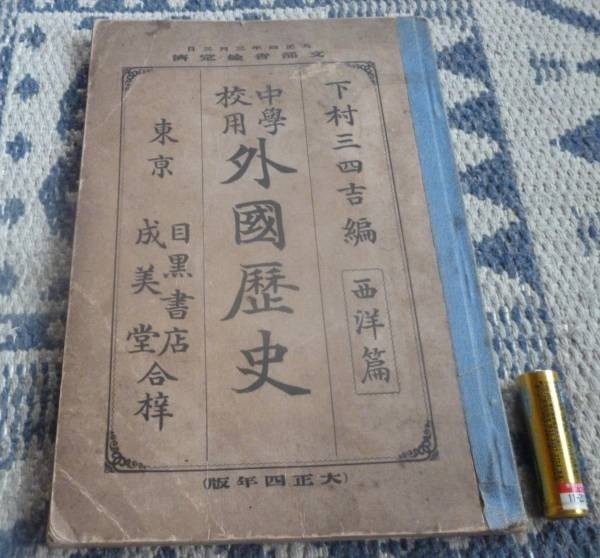 大正四年三月三日
文部省檢定濟
下村三四吉編
西洋篇
中學
校用
外國歷史
東京
目黑書店
成美堂
合梓
(大正四年版)